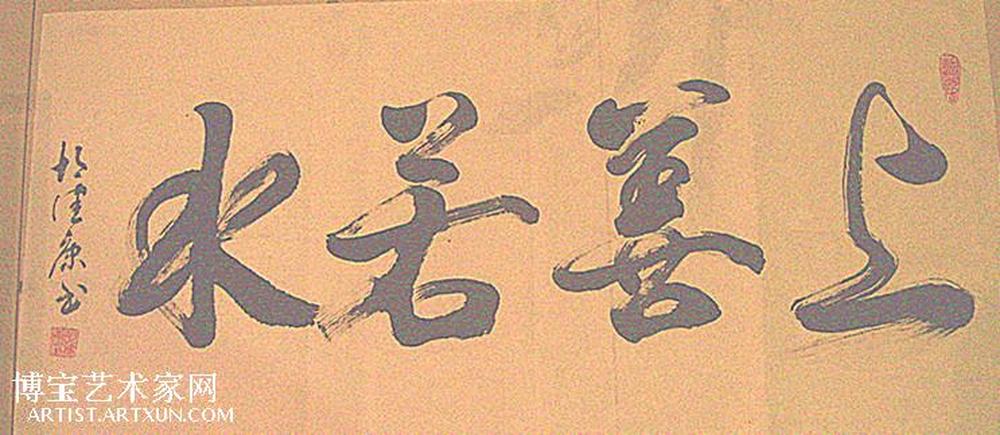 上善若水
博宝艺术家网
ARTIST.ARTXUN.COM